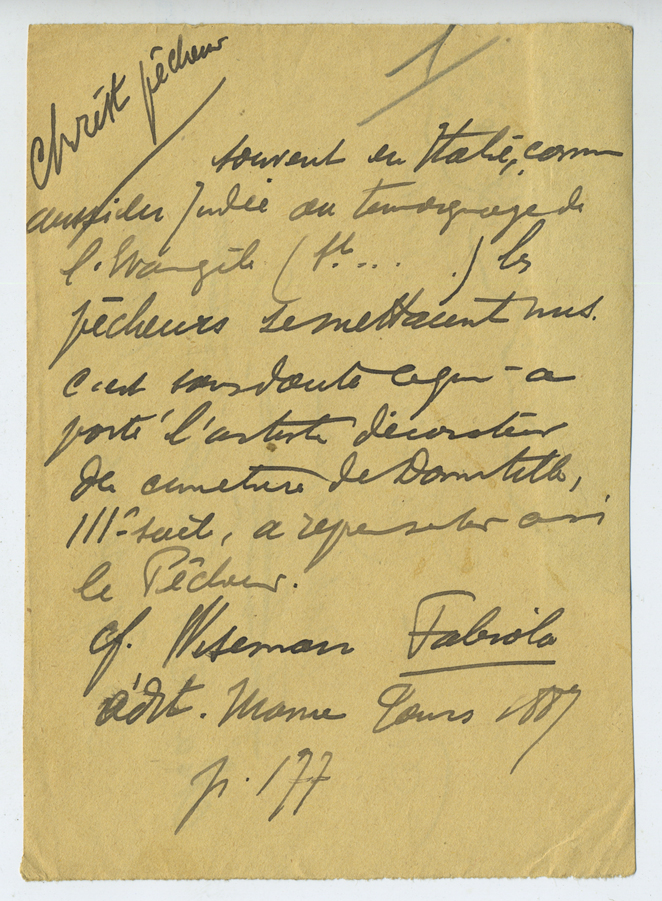 Christ pêcheur
1
souvent en Italie, comme
aussi en Judée au temoignage de
l'Evangile (St... .) les
pêcheurs se mettaient nus.
c'est sans doute ce qui a
porté l'artiste décorateur
du cimetière de Domitille,
IIIe siècle, a représenter ainsi
le Pêcheur.
cf. Wiseman Fabiola
édit. Mame Tours 1887
p. 177